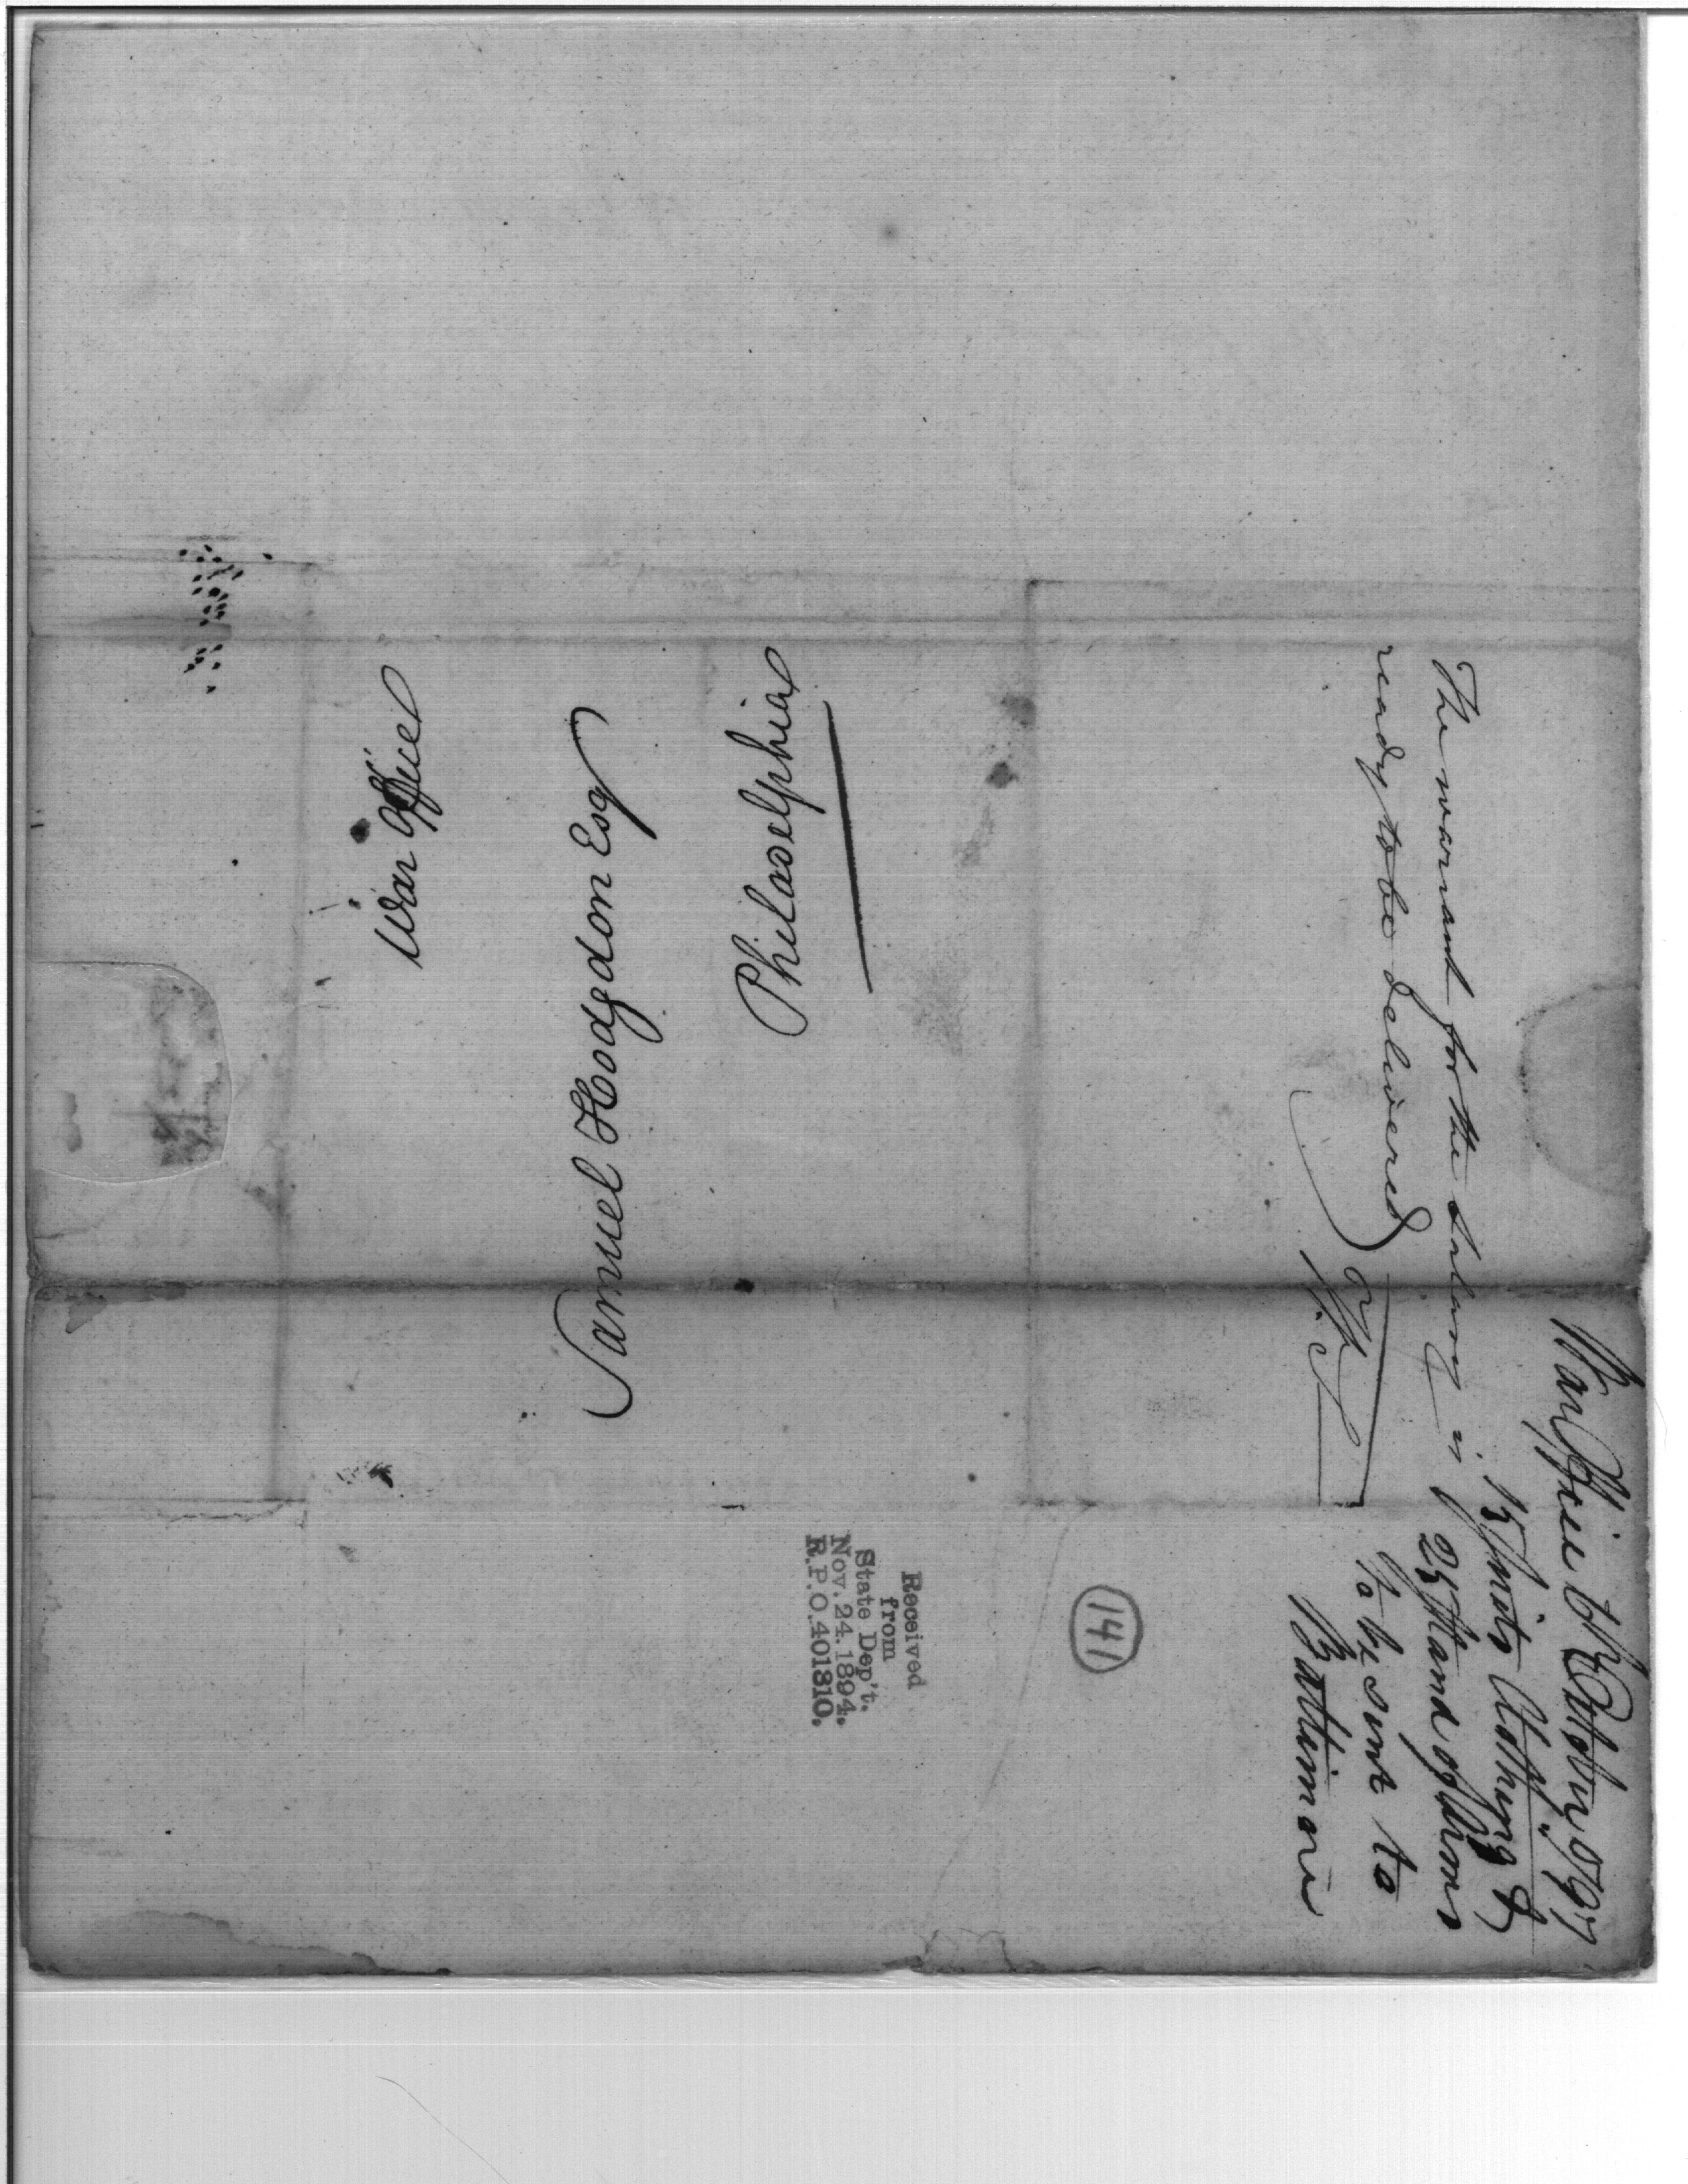 War Office
Samuel Hodgdon Esq
Philadelphia
The warrant for the Salary is
ready to be delivered
War Office 6th October 1797
15 Suits Clothing &
25 Stand of Arms
To be sent to
Baltimore
141
Received
from
State Dep't.
Nov. 24. 1894.
R.P.O. 401310.